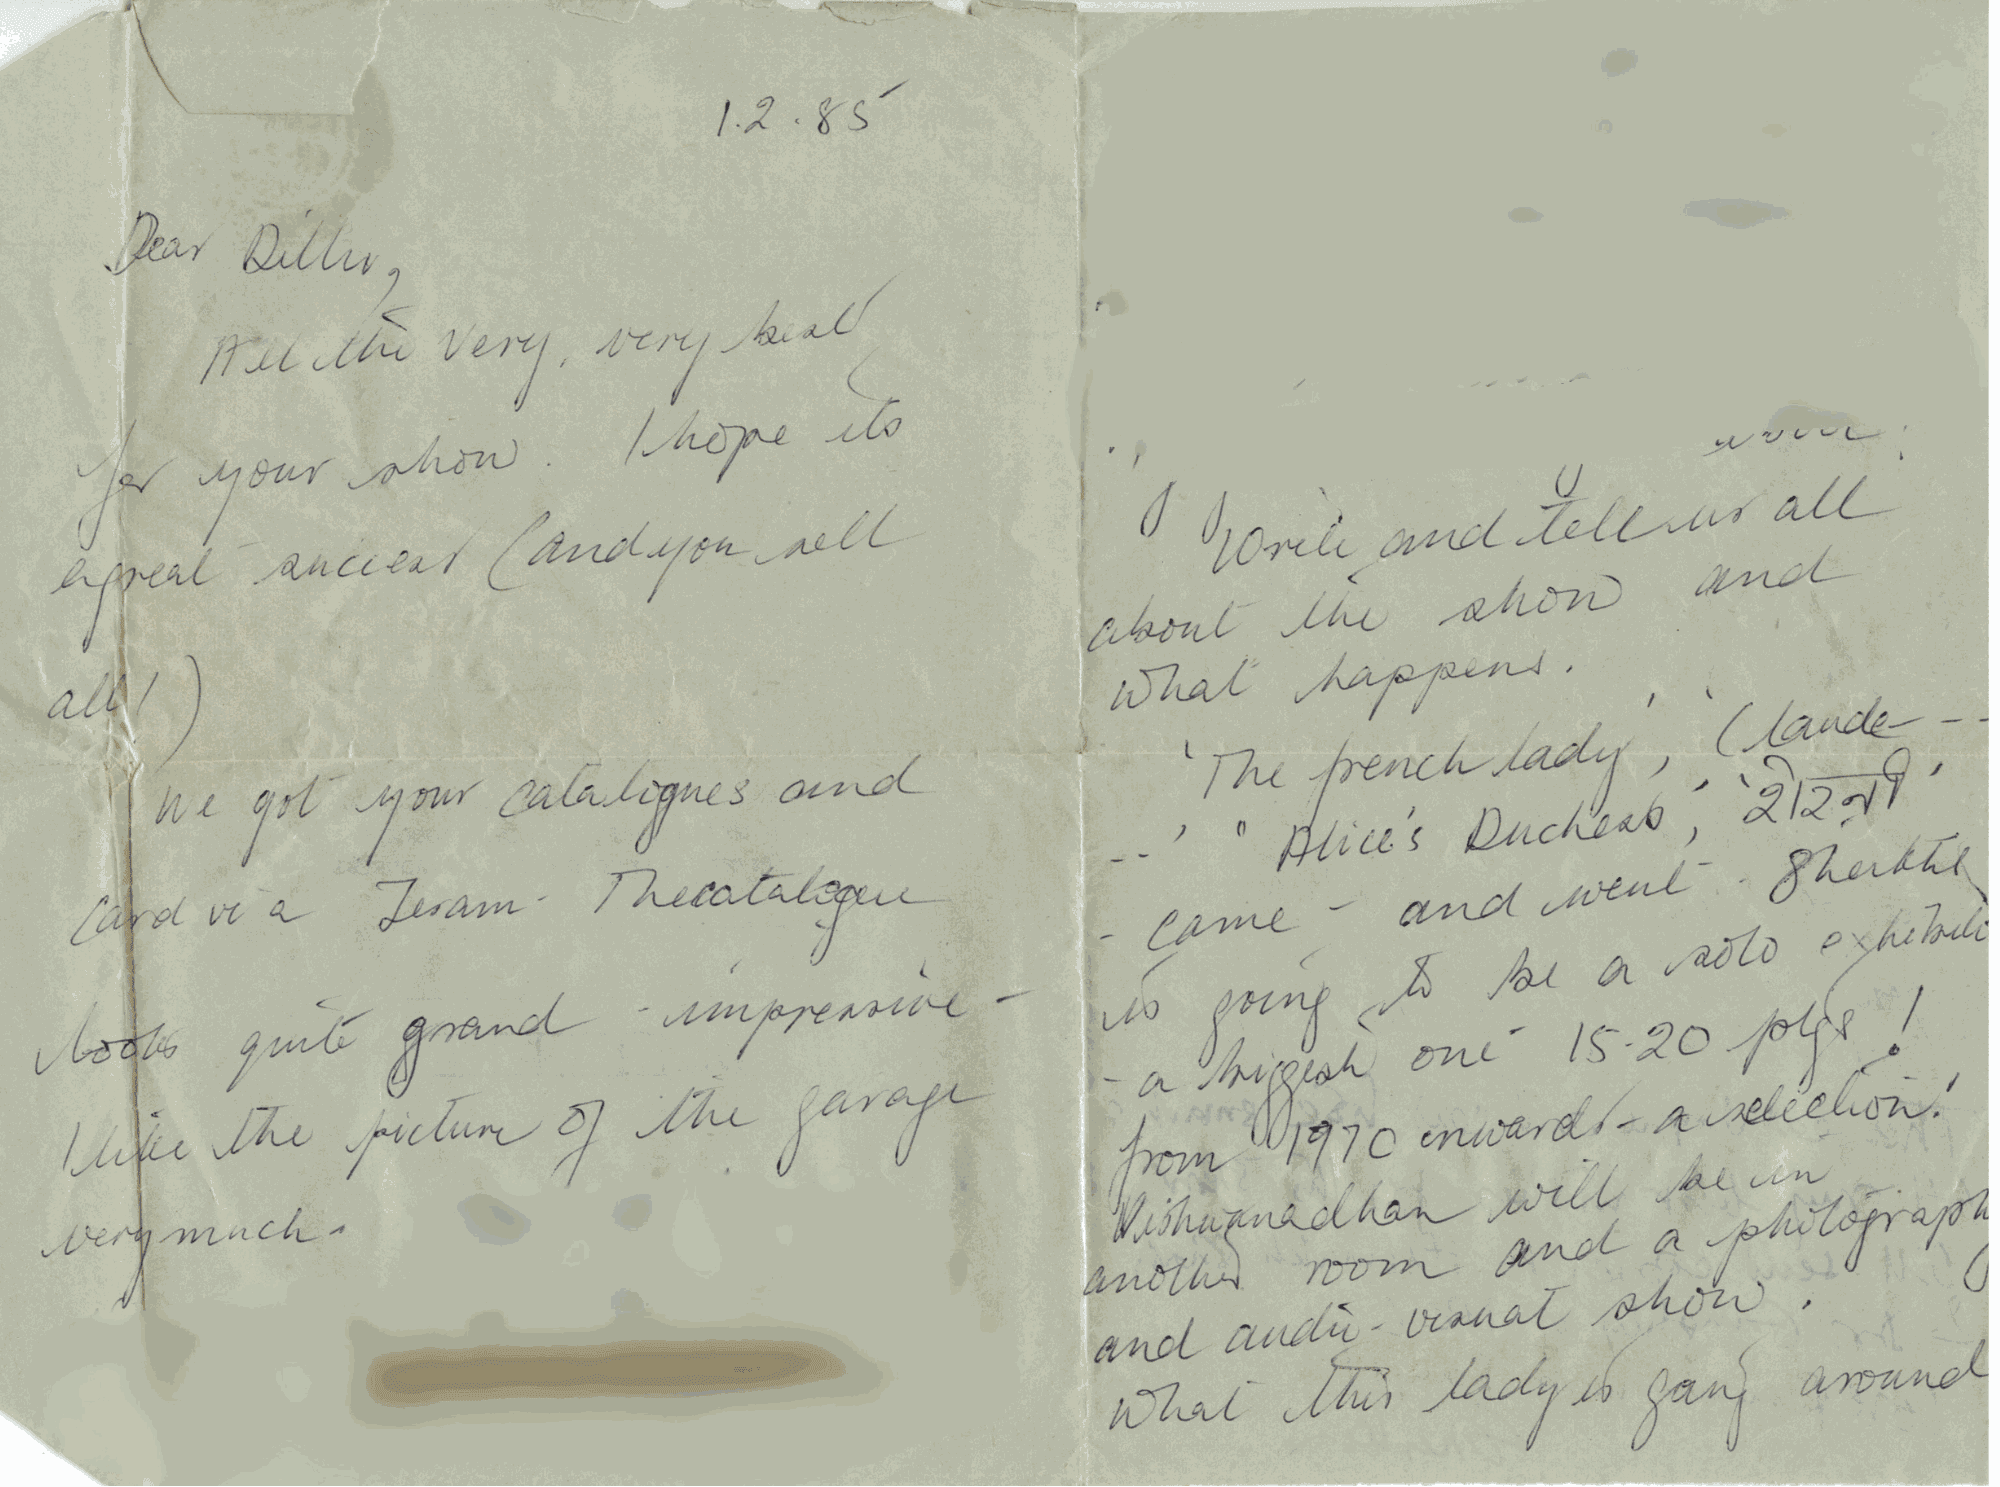 1.2.85
Dear
All the very, very best
for your show. I hope its
a great success (and you sell
all!)
We got your catalogues and
card via Jeram - The catalogue
looks quite grand - impressive -
I like the picture of the garage
very much -
Write and tell us all
about the show and
what happens.
'The french lady', '(laude - -
- - ' " Alice's Duchess',
- came - and went -
is going to be a solo
- a biggish one - 15-20 ptgs!
from 1970 onwards - a selection!
Vishwanadhan will be in
another room and a photography
and audio-visual show.
what this lady is going around